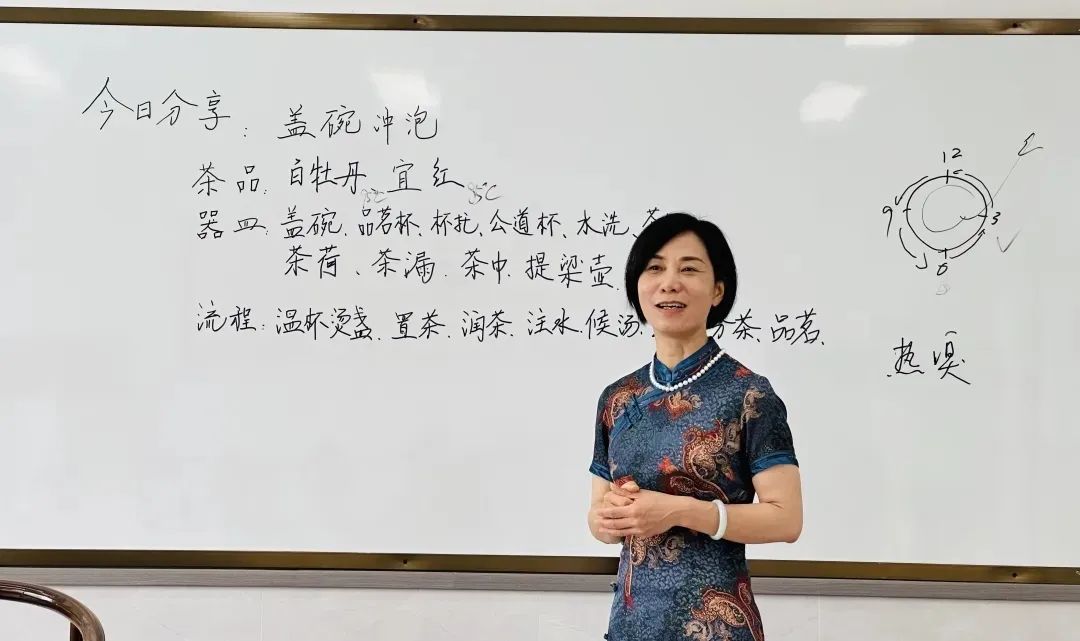 今日分享：盖碗冲泡
茶品：白牡丹、宜红 95℃
器皿：盖碗、品茗杯、杯托、公道杯、水洗、茶
茶荷、茶漏、茶巾、提梁壶.
流程：温杯烫盏、置茶、润茶、注水、候汤、分茶、品茗、
12
9 3
6
热嗅